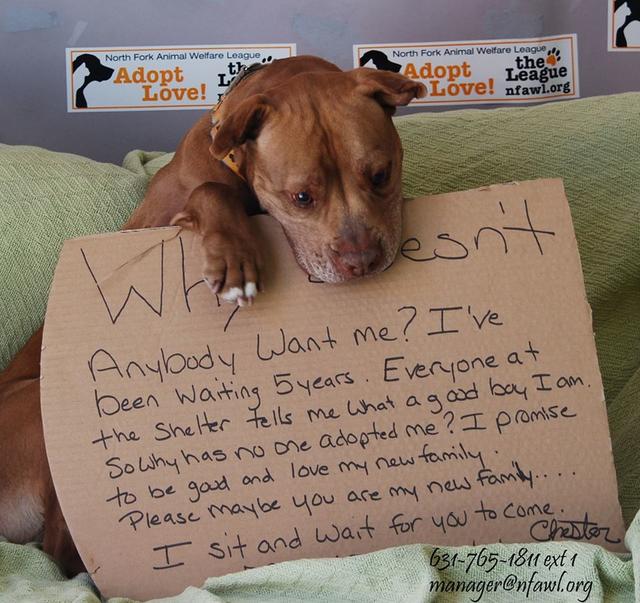 North Fork Animal Welfare League
Adopt Love!
the L
North Fork Animal Welfare League
Adopt Love!
the League
nfawl.org
Why esn't
Anybody Want me? I've
been waiting 5 years. Everyone at
the shelter tells me what a good boy I am.
So why has no one adopted me? I promise
to be good and love my new family.
Please maybe you are my new family....
I sit and wait for you to come.
Chester
631-765-1811 ext 1
manager@nfawl.org